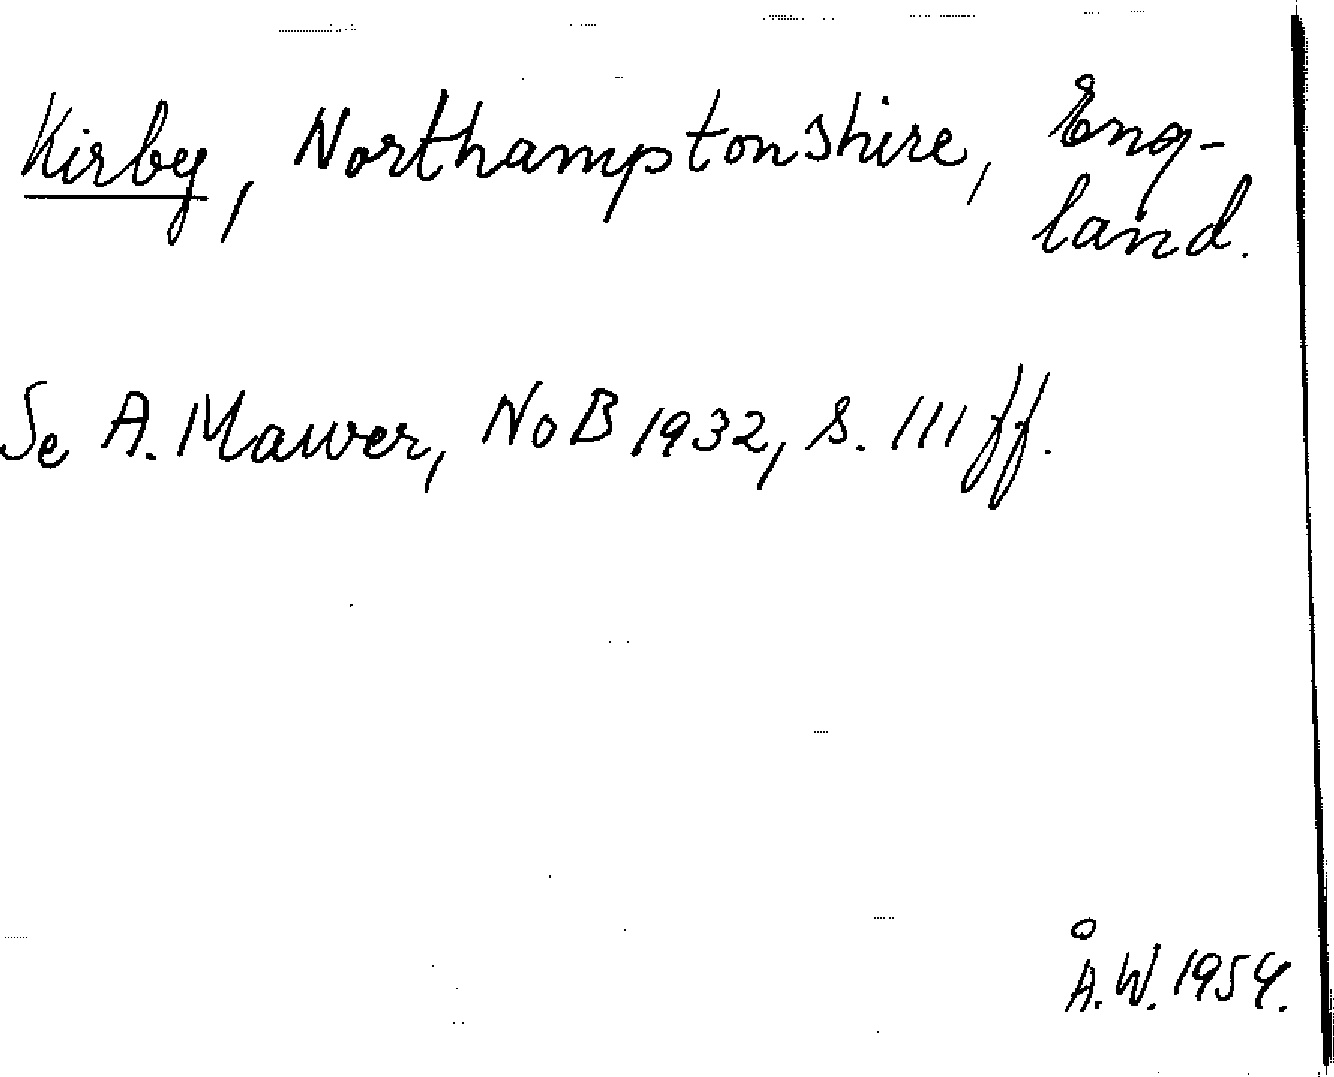 Kirby, Northamptonshire, Eng-
land.
Se A. Mawer, NoB 1932, s. 111 ff.
Å.W. 1954.